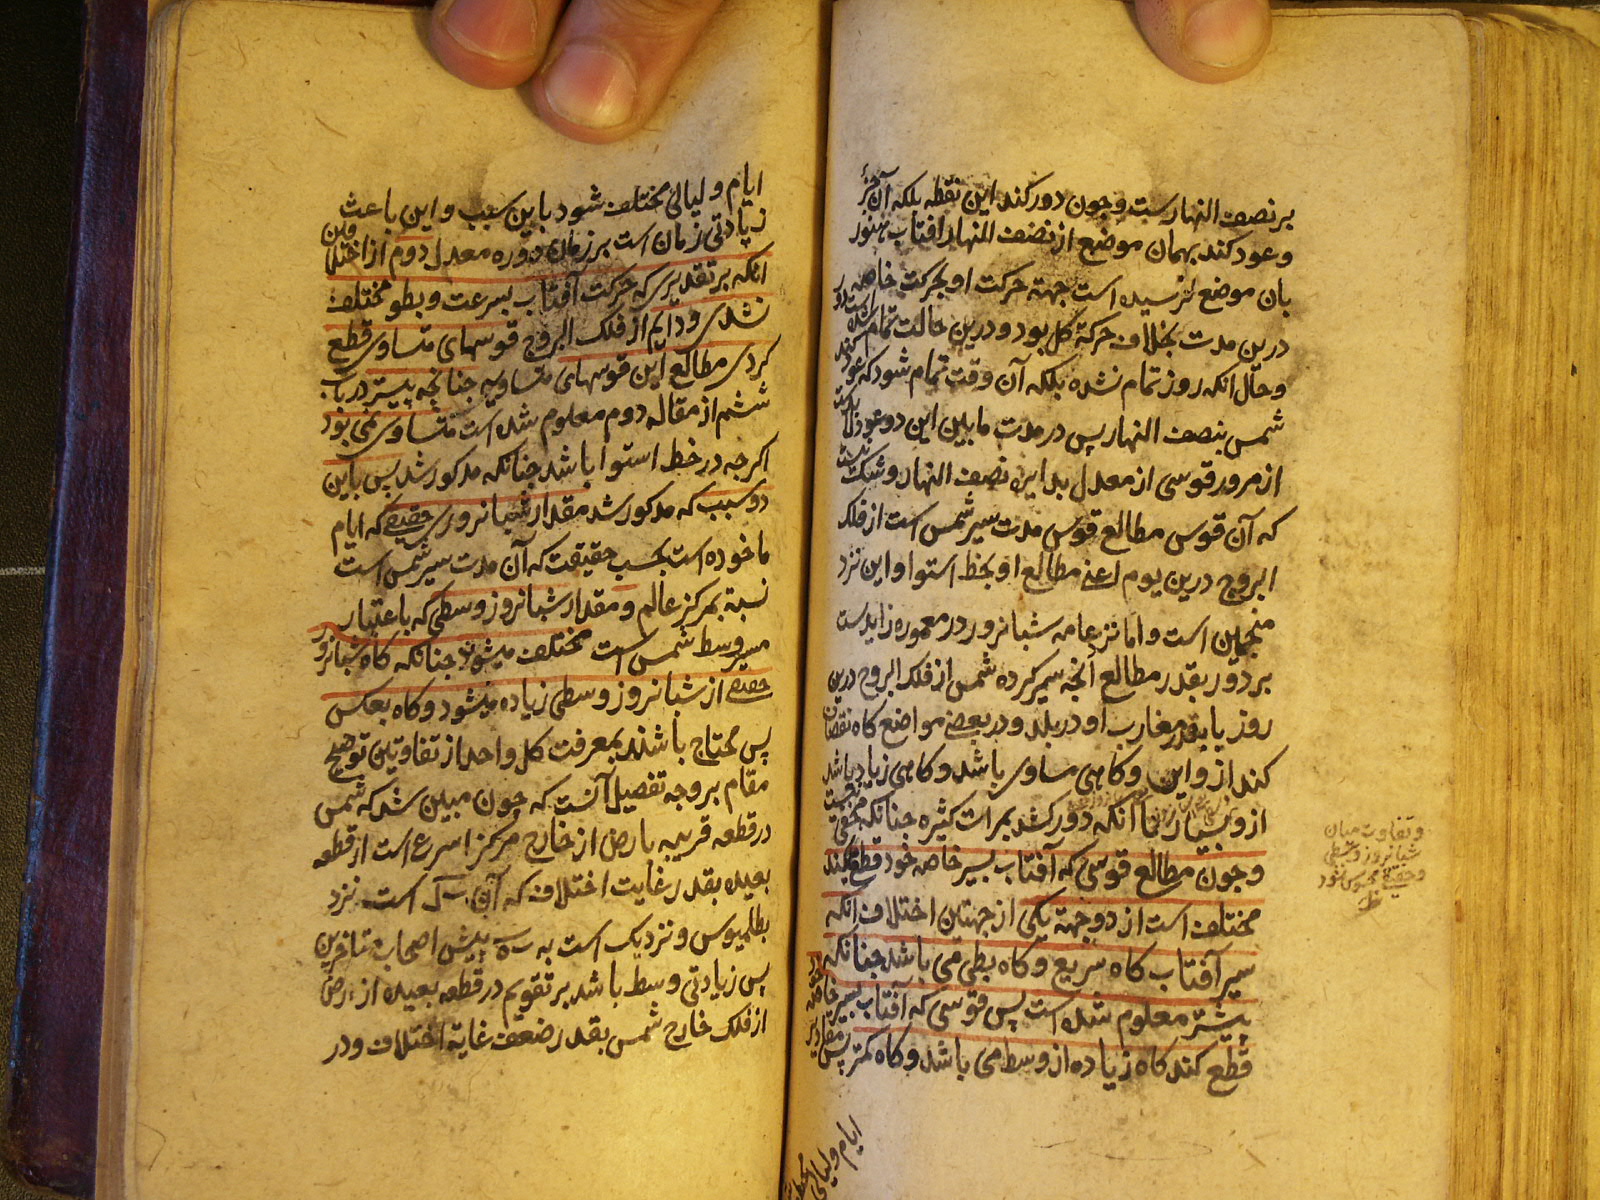 بر نصف النهارست و جون دور کند این نقطه بلکه آن جزؤ
و عود کند بهمان موضع از نصف النهار افتاب هنوز
بان موضع نرسیده است جهة حرکت او بحرکت خاصه
درین مدت بخلاف حرکة کل بود و درین حالت تمام شده
و حال انکه روز تمام نشده بلکه آن وقت تمام شود که عود کند
شمس بنصف النهار پس در مدت ما بین این دو عود
از مرور قوسی از معدل بدایره نصف النهار و شک نیست
که آن قوس مطالع قوس مدت سیر شمس است از فلک
البروج درین یوم اعنے مطالع او بخط استوا و این نزد
منجمین است و اما نزد عامه شبانروز در معموره زایدست
بر دور بقدر مطالع آنجه سیر کرده شمس از فلک البروج درین
روز یا بقدر مغارب او در بلد و در بعضے مواضع کاه نقصان
کند ازو این و کاهی مساوی باشد و کاهی زیاد باشد
ازو بسیار تا آنکه دور کشد بمرات کثیره جنانکه مخفی نیست
و جون مطالع قوسی که آفتاب بسیر خاصه خود قطع میکند
مختلف است از دو جهة یکی از جهتین اختلاف انکه
سیر آفتاب کاه سریع و کاه بطی می باشد جنانکه
پیشتر معلوم شده است پس قوسی که آفتاب بسیر خاصه خود
قطع کند کاه زیاده از وسط می باشد و کاه کمتر پس مقادیر
و تفاوت میان
شبانروز وسطی
و حقیقے محسوس شود
ایام و لیالی
ایام و لیالی مختلف شود باین سبب و این باعث
زیادتی زمان است بر زمان دوره معدل دوم از اختلافین
انکه بر تقدیری که حرکت آفتاب بسرعت و بطو مختلف
نشدی و دایم از فلک البروج قوسهای متساوی قطع
کردی مطالع این قوسهای متساویه جنانجه پیشتر در باب
ششم از مقاله دوم معلوم شده است متساوی نمی بود
اکرجه در خط استوا باشد جنانکه مذکور شد پس باین
دو سبب که مذکور شد مقدار شبانروزی حقیقے که ایام
ماخوده است بحسب حقیقت که آن مدت سیر شمس است
نسبة بمرکز عالم و مقدار شبانروز وسطی که باعتبار
سیر وسط شمس است مختلف میشود جنانکه کاه شبانروز
حقیقے از شبانروز وسطی زیاده میشود و کاه بعکس
پس محتاج باشند بمعرفت کل واحد از تفاوتین توضیح
مقام بر وجه تفصیل آنست که جون مبین شد که شمس
در قطعه قریبه بارض از خارج مرکز اسرع است از قطعه
بعیده بقدر غایت اختلاف که آن است نزد
بطلمیوس و نزدیک است به پیش اصحاب متاخرین
پس زیادتی وسط باشد بر تقویم در قطعه بعیده از ارض
از فلک خارج شمس بقدر ضعف غایة اختلاف و در